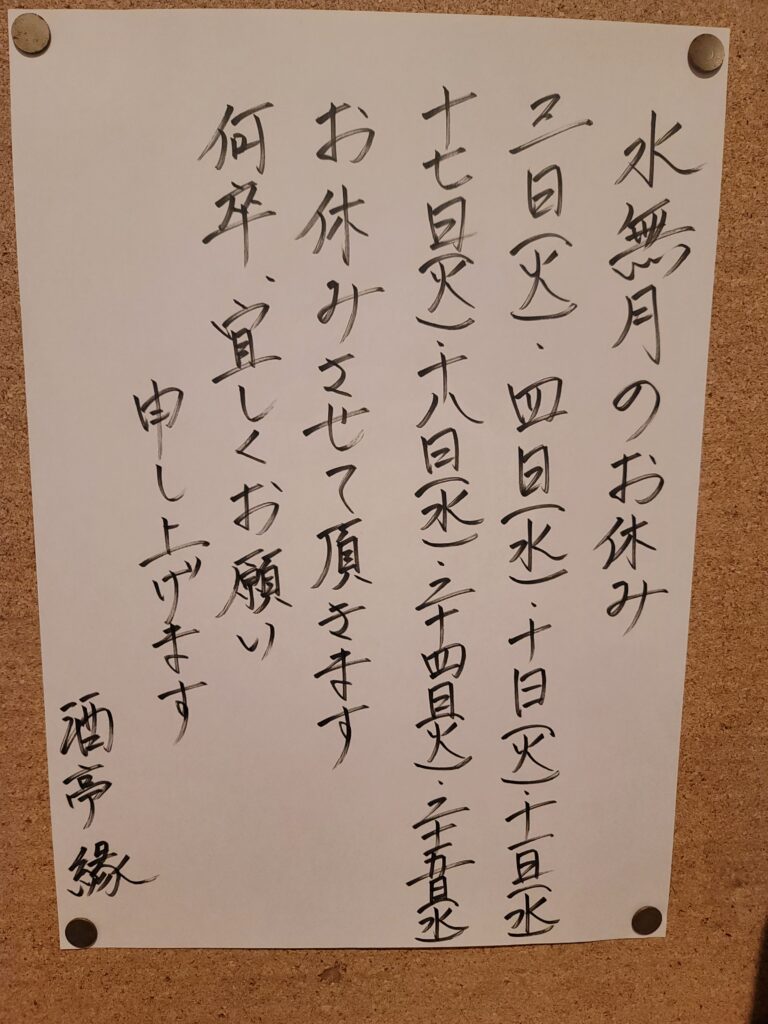 水無月のお休み
三日(火)・四日(水)・十日(火)・十一日(水)
十七日(火)・十八日(水)・二十四日(火)・二十五日(水)
お休みさせて頂きます
何卒、宜しくお願い
申し上げます
酒亭 縁